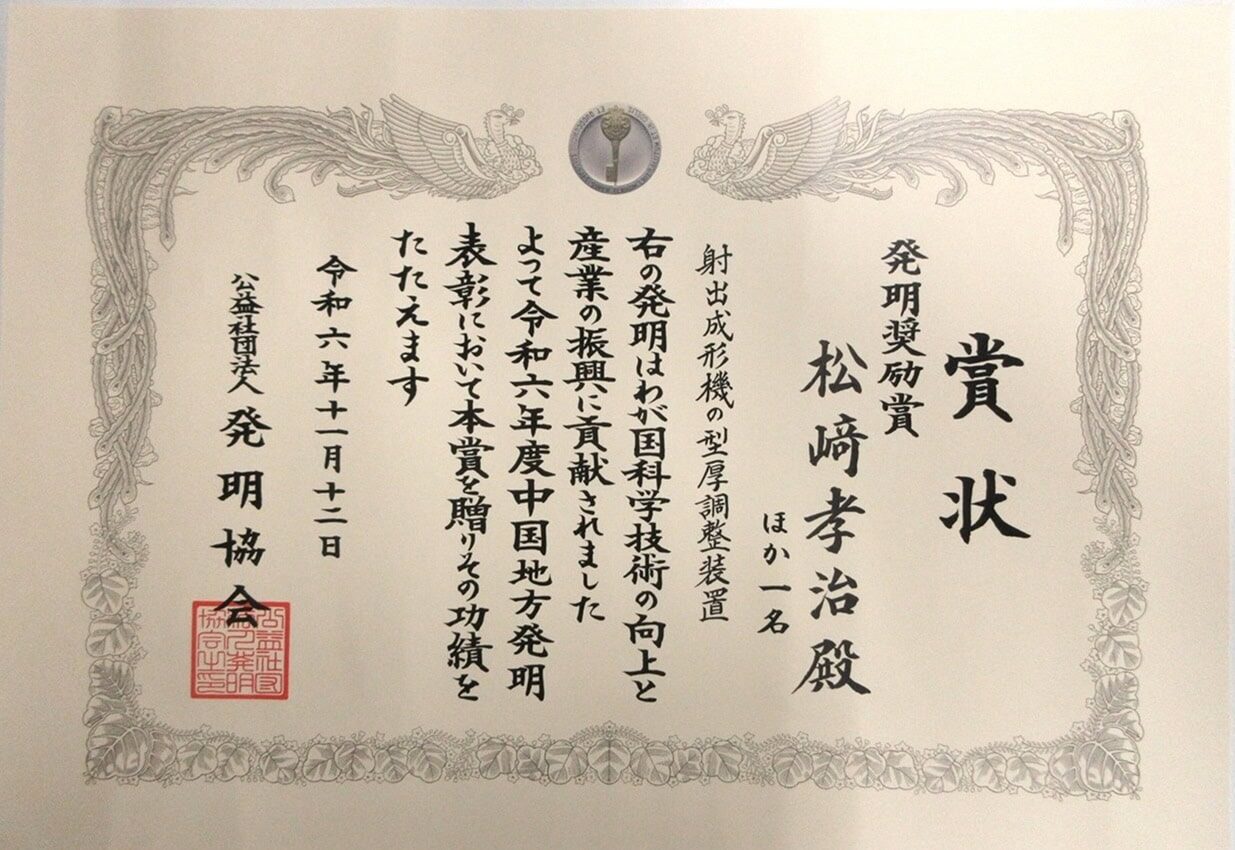 賞状
発明奨励賞
松﨑孝治殿
ほか一名
射出成形機の型厚調整装置
右の発明はわが国科学技術の向上と
産業の振興に貢献されました
よって令和六年度中国地方発明
表彰において本賞を贈りその功績を
たたえます
令和六年十一月十二日
公益社団法人発明協会